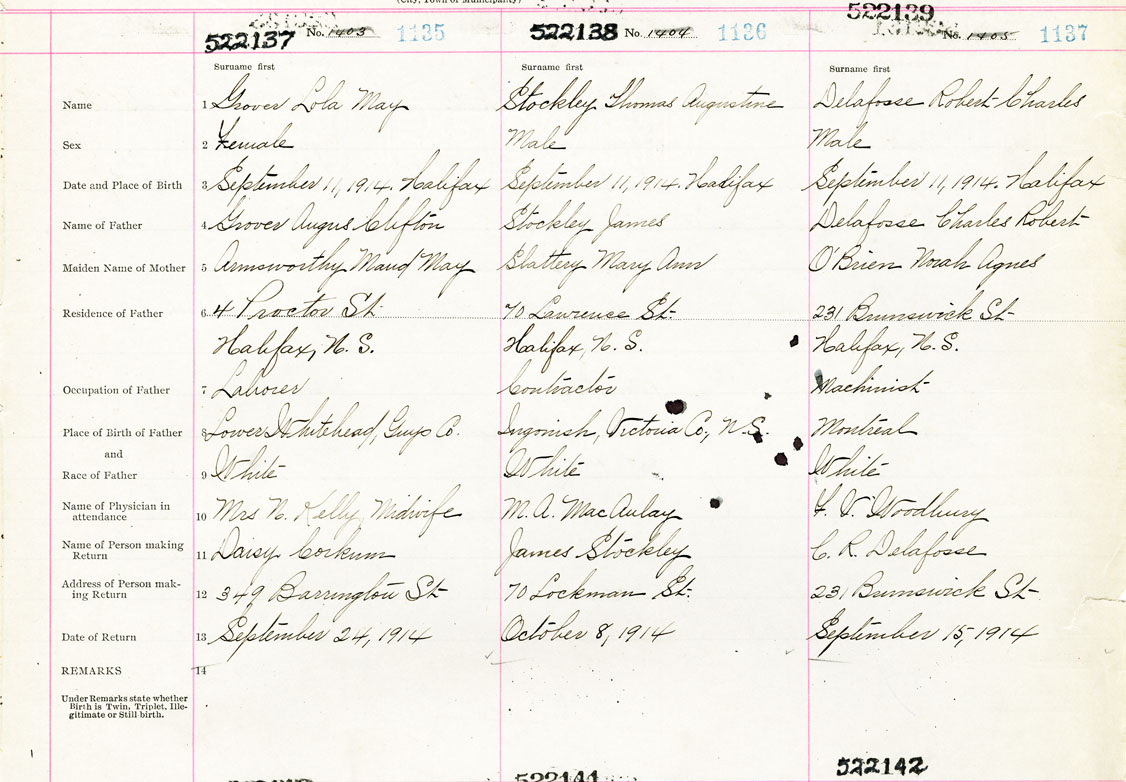 (City, Town or Municipality)
522137 No. 1403 1135 522138 No. 1404 1136 522139 No. 1405 1137
Surname first Surname first Surname first
Name 1 Grover Lola May Stockley Thomas Augustine Delafosse Robert Charles
Sex 2 Female Male Male
Date and Place of Birth 3 September 11, 1914. Halifax September 11, 1914. Halifax September 11, 1914. Halifax
Name of Father 4 Grover Angus Clifton Stockley James Delafosse Charles Robert
Maiden Name of Mother 5 Armsworthy Maud May Slattery Mary Ann O'Brien Norah Agnes
Residence of Father 6 4 Proctor St. 70 Lawrence St. 231 Brunswick St
Halifax, N. S. Halifax, N. S. Halifax, N. S.
Occupation of Father 7 Laborer Contractor Machinist
Place of Birth of Father 8 Lower Whitehead, Guys Co. Ingonish, Victoria Co., N.S. Montreal
and
Race of Father 9 White White White
Name of Physician in
attendance 10 Mrs N. Kelly, Midwife M. A. MacAulay F. V. Woodbury
Name of Person making
Return 11 Daisy Corkum James Stockley C. R. Delafosse
Address of Person mak-
ing Return 12 349 Barrington St 70 Lockman St. 231 Brunswick St
Date of Return 13 September 24, 1914 October 8, 1914 September 15, 1914
REMARKS 14
Under Remarks state whether
Birth is Twin, Triplet, Ille-
gitimate or Still birth.
522141 522142